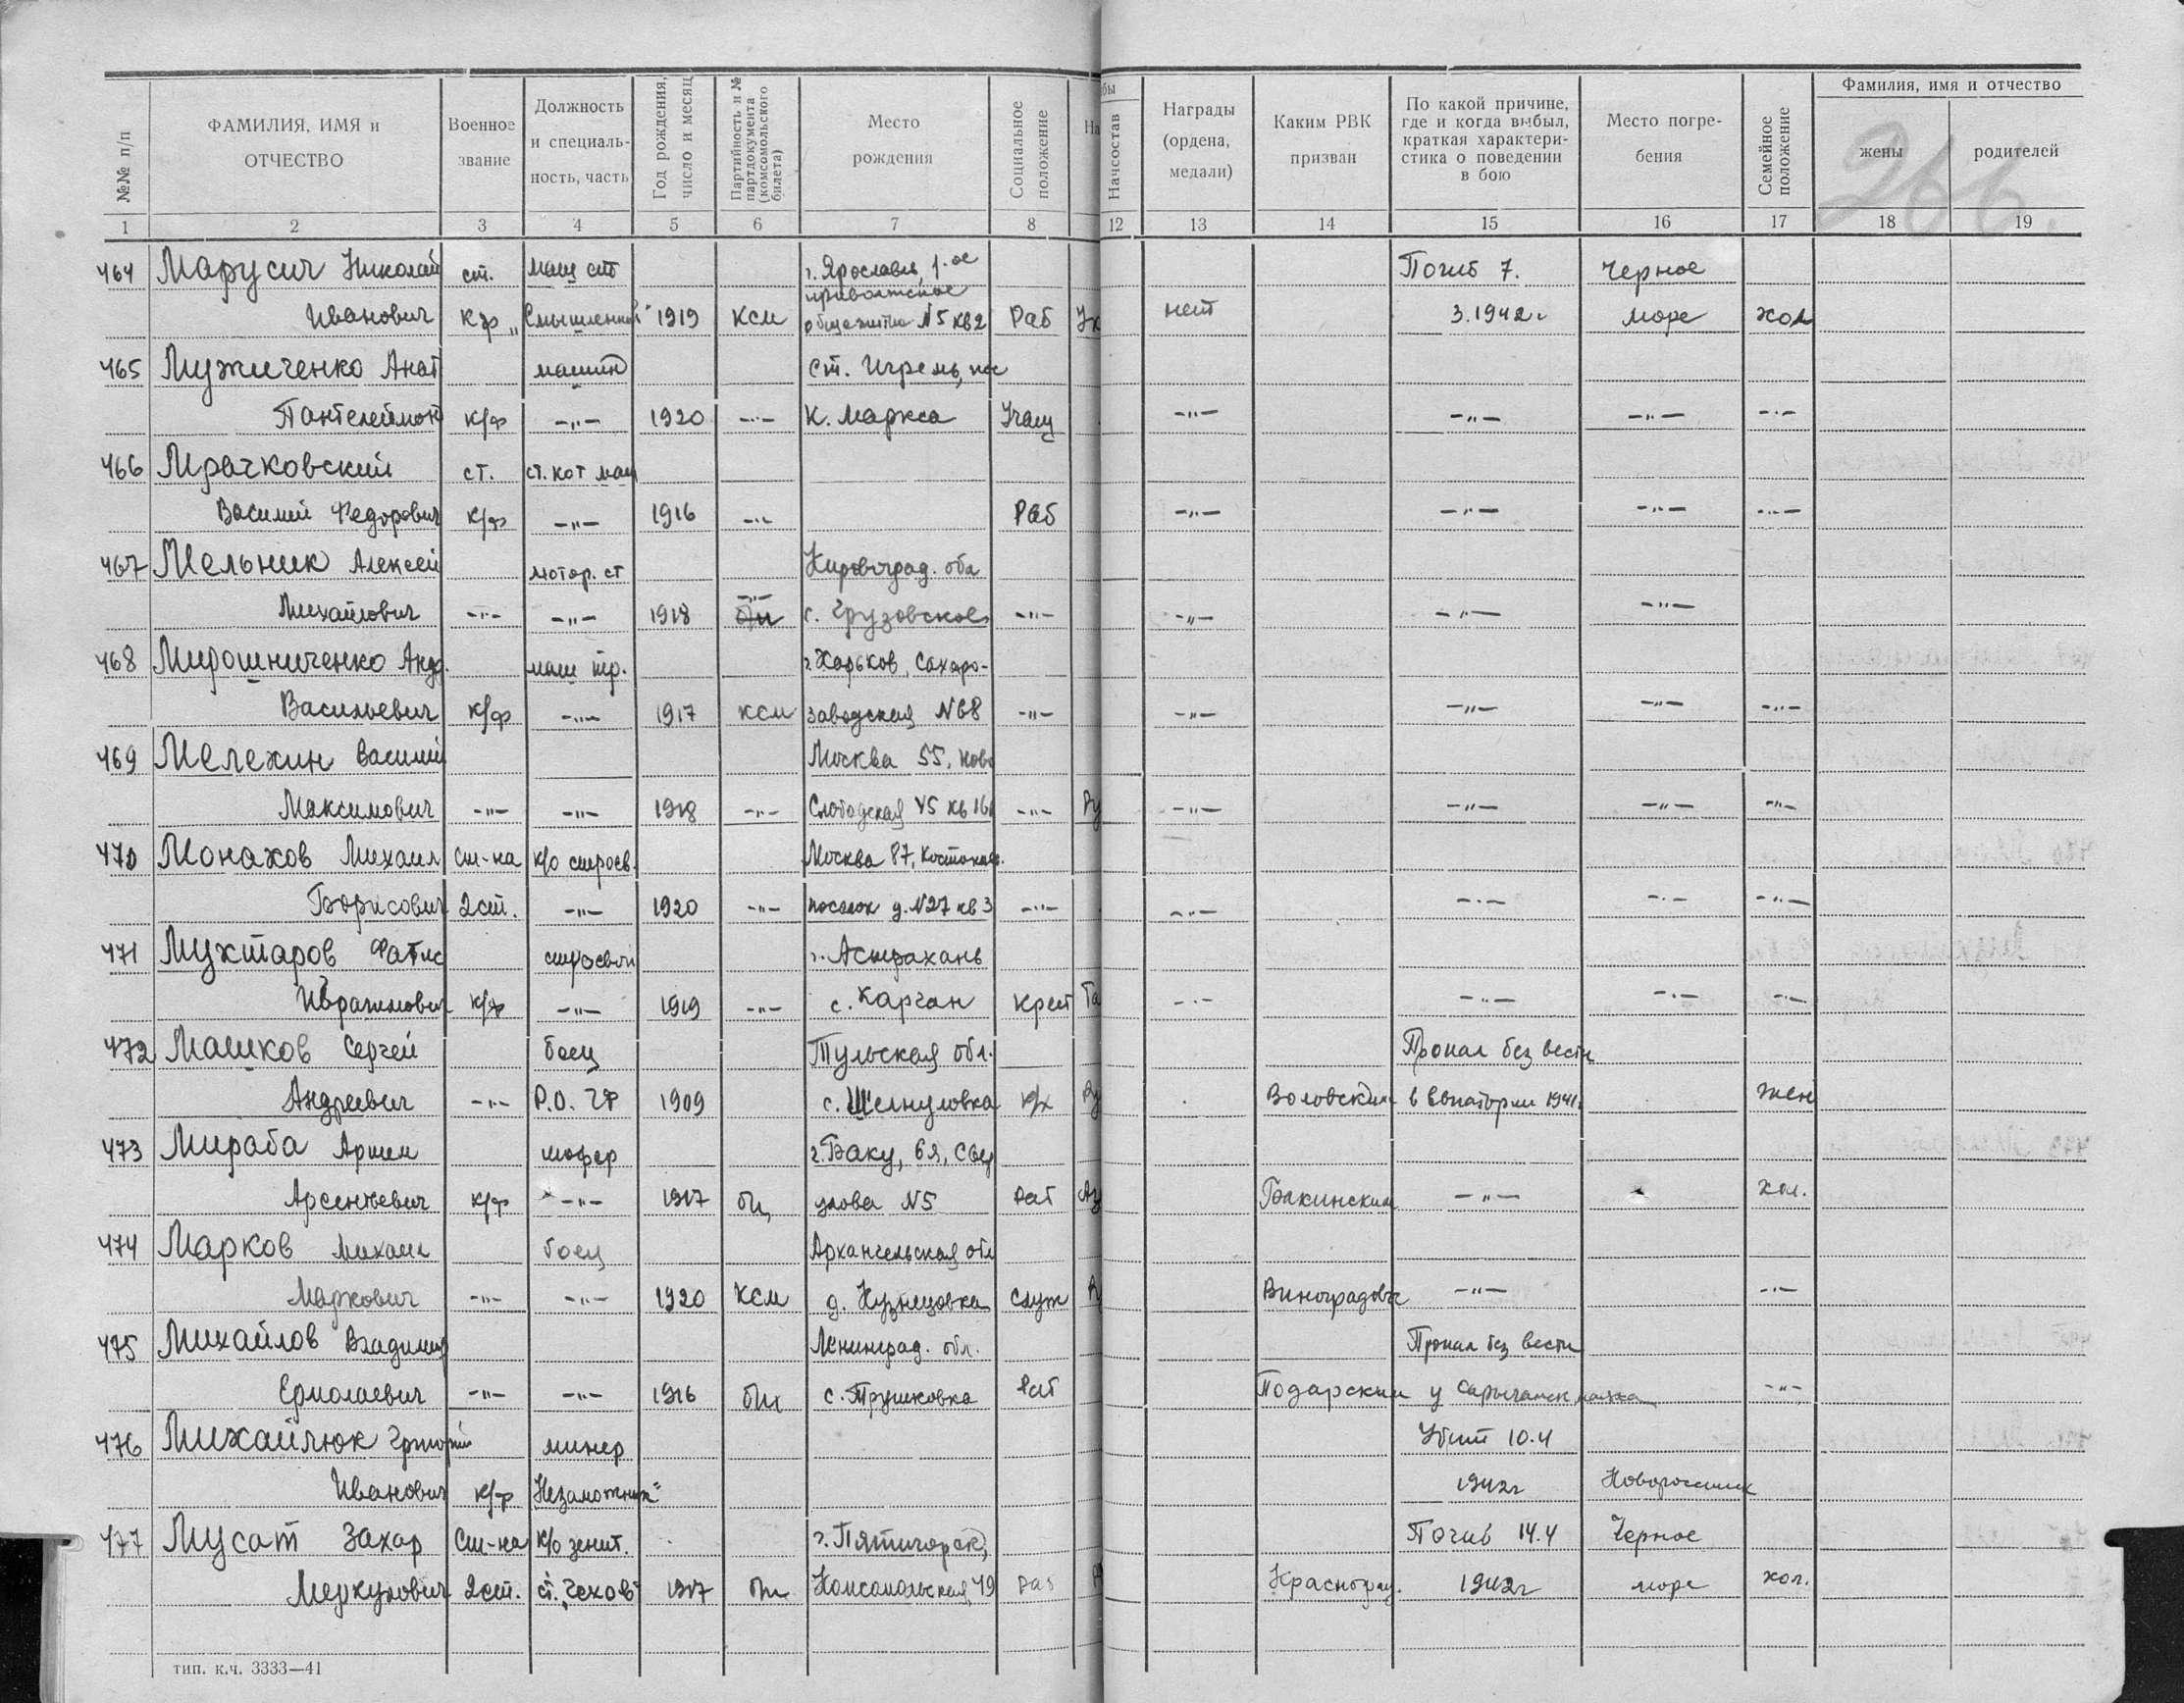 266.
№№ п/п | ФАМИЛИЯ, ИМЯ и ОТЧЕСТВО | Военное звание | Должность и специальность, часть | Год рождения, число и месяц | Партийность и № партдокумента (комсомольского билета) | Место рождения | Социальное положение | На | бы Начсостав | Награды (ордена, медали) | Каким РВК призван | По какой причине, где и когда выбыл, краткая характеристика о поведении в бою | Место погребения | Семейное положение | Фамилия, имя и отчество жены | родителей
1 | 2 | 3 | 4 | 5 | 6 | 7 | 8 | 12 | 13 | 14 | 15 | 16 | 17 | 18 | 19
464 Марусич Николай ст. маш ст г. Ярославль, 1-ое Погиб 7. Черное
приволжское
Иванович кф „Смышленный" 1919 КСМ общежитие №5 кв 2 Раб Ук нет 3.1942г море хол
465 Мужиченко Анат машин ст. Игрень, пос
Пантелеймон к/ф -„- 1920 -„- К. Маркса Учащ -„- -„- -„- -„-
466 Мрачковский ст. ст. кот маш
Василий Федорович к/ф -„- 1916 -„- Раб -„- -„- -„- -„-
467 Мельник Алексей мотор. ст Кировоград. обл
Михайлович -„- -„- 1918 -„- с. Грузовское -„- -„- -„- -„-
468 Мирошниченко Андр. маш тр. г. Харьков, Сахаро-
Васильевич к/ф -„- 1917 КСМ заводская №68 -„- -„- -„- -„- -„-
469 Мелехин Василий Москва 55, Ново
Максимович -„- -„- 1918 -„- Слободская 45 кв 16 -„- Ру -„- -„- -„- -„-
470 Монахов Михаил Ст-на к/о строев. Москва 87,
Борисович 2 ст. -„- 1920 -„- поселок д. №27 кв 3 -„- -„- -„- -„- -„-
471 Мухтаров строевой г. Астрахань
Ибрагимович к/ф -„- 1919 -„- с. Карган Крест Та -„- -„- -„- -„-
472 Машков Сергей боец Тульская обл. Пропал без вести
Андреевич -„- Р.О. ЧФ 1909 с. к/х Ру Воловским в Евпатории 1941г жен
473 Мираба Аршем шофер г. Баку, 6я, Сву
Арсентьевич к/ф -„- 1917 б/п №5 Раб Аз Бакинским -„- хол.
474 Марков Михаил боец Архангельская обл
Маркович -„- -„- 1920 КСМ д. Кузнецовка Служ Р Виноградовск -„- -„-
475 Михайлов Владимир Ленинград. обл. Пропал без вести
Ермолаевич -„- -„- 1916 б/п с. Трушковка Раб Подарским у маяка -„-
476 Михайлюк Григорий минер Убит 10.4
Иванович к/ф Незаможник" 1942г Новороссийск
477 Мусат Захар Ст-на к/о зенит. г. Пятигорск, Погиб 14.4 Черное
Меркулович 2 ст. ст. „Чехов" 1917 б/п Комсомольская 49 Раб Р Красноград. 1942г море хол.
тип. к.ч. 3333—41